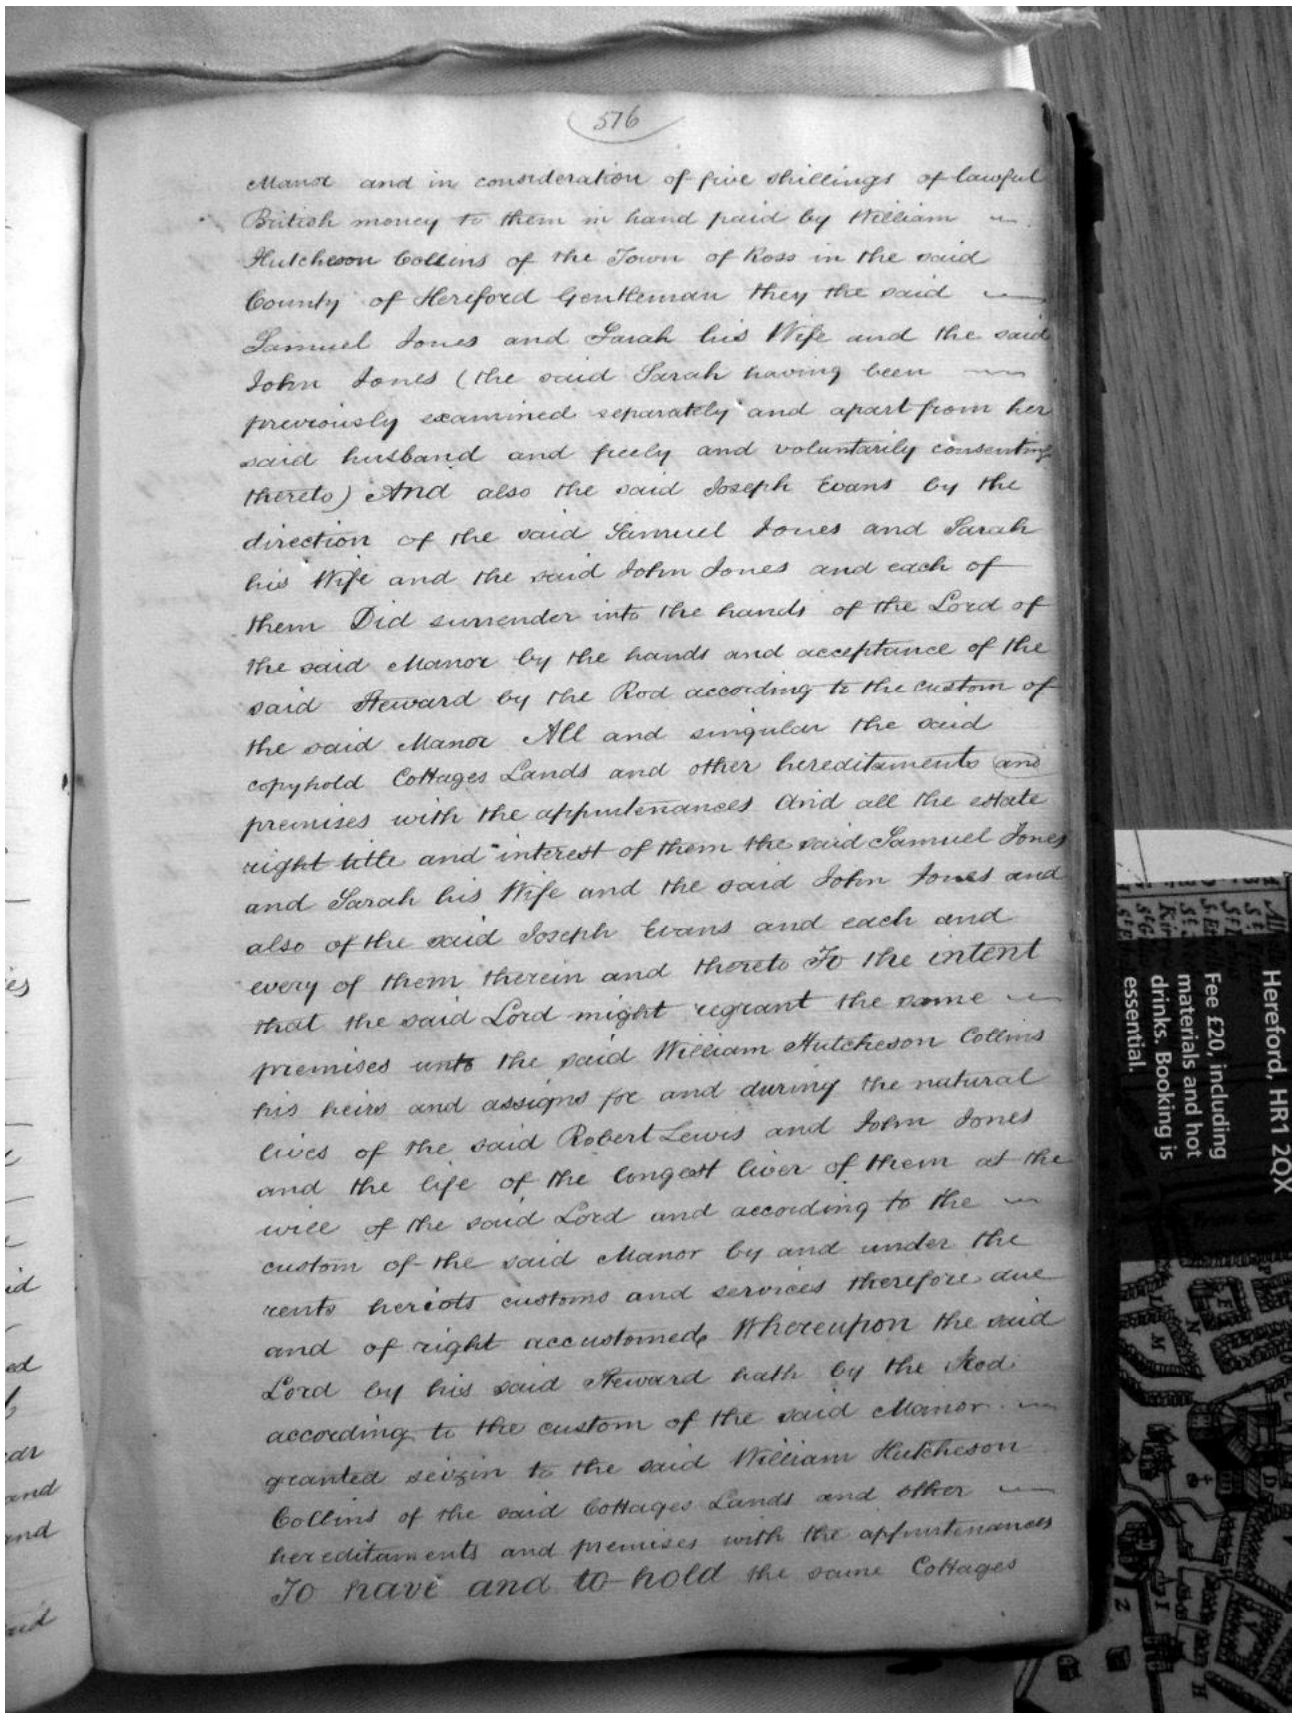 576
Manor and in consideration of five shillings of lawful
British money to them in hand paid by William
Hutcheson Collins of the Town of Ross in the said
County of Hereford Gentleman they the said
Samuel Jones and Sarah his Wife and the said
John Jones (the said Sarah having been
previously examined separately and apart from her
said husband and freely and voluntarily consenting
thereto) And also the said Joseph Evans by the
direction of the said Samuel Jones and Sarah
his Wife and the said John Jones and each of
them Did surrender into the hands of the Lord of
the said Manor by the hands and acceptance of the
said Steward by the Rod according to the custom of
the said Manor All and singular the said
copyhold Cottages Lands and other hereditaments and
premises with the appurtenances And all the estate
right title and interest of them the said Samuel Jones
and Sarah his Wife and the said John Jones and
also of the said Joseph Evans and each and
every of them therein and thereto To the intent
that the said Lord might regrant the same
premises unto the said William Hutcheson Collins
his heirs and assigns for and during the natural
lives of the said Robert Lewis and John Jones
and the life of the longest liver of them at the
will of the said Lord and according to the
custom of the said Manor by and under the
rents heriots customs and services therefore due
and of right accustomed Whereupon the said
Lord by his said Steward hath by the Rod
according to the custom of the said Manor
granted seizin to the said William Hutcheson
Collins of the said Cottages Lands and other
hereditaments and premises with the appurtenances
To have and to hold the same Cottages
Hereford, HR1 2QX
Fee £20, including
materials and hot
drinks. Booking is
essential.